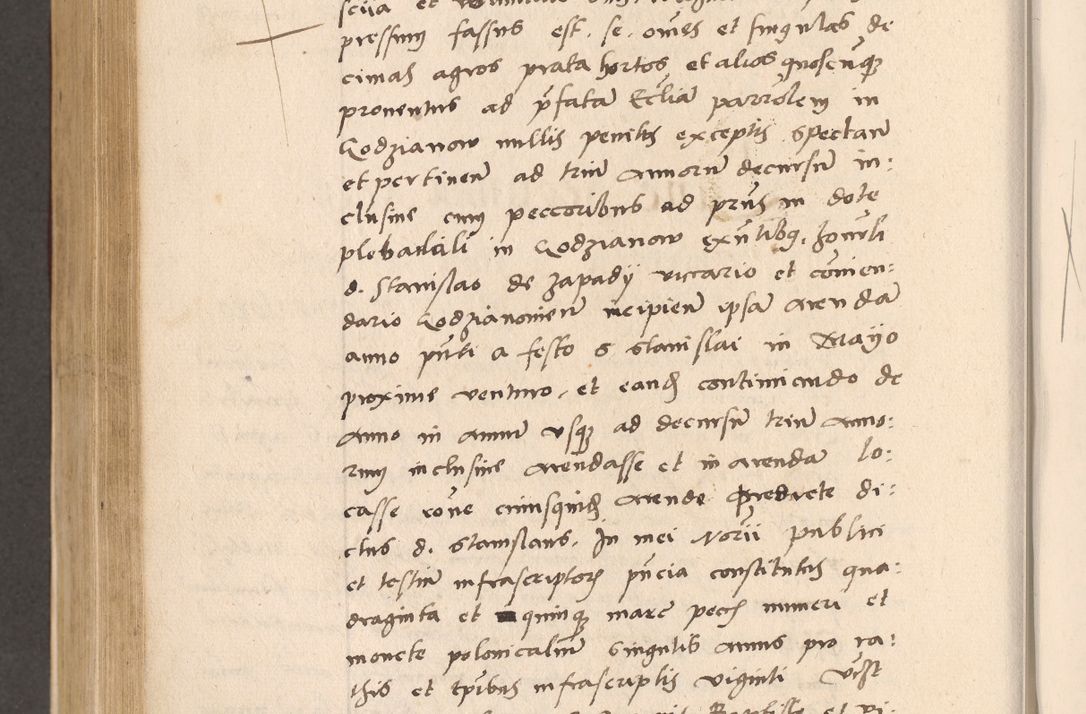 pressim fassus est se om̄es et singulas de
cimas agros prata hortos et alios quoscūq
prouentus ad p̄fatā Eccl̄iā parrōlem in
Godzianow nullis penitus exceptis spectan̄
et pertinen̄ ad triū annorū decursū in:
clusiue cum peccoribus ad pn̄s in dote
plebanali in Godzianow exn̄tibq honorli
d. Stanislao de Zapady viccario et com̄en:
dario Godzianouien̄ incipien̄ ipsā arendā
anno pn̄ti a festo s Stanislai in Mayo
proxime venturo et eand continuando de
anno in annū vsq ad decursū triū anno:
rum inclusiue arendasse et in arendā lo:
casse rōne cuiusquid arende predicte di:
ctus d. Stanislaus. In mei Norii publici
et testiū infrascriptor pn̄cia constitutus qua:
draginta et quinq marc pecc numeri et
monete polonicaliū singulis annis pro ra:
this et tpribus infrascriptis viginti